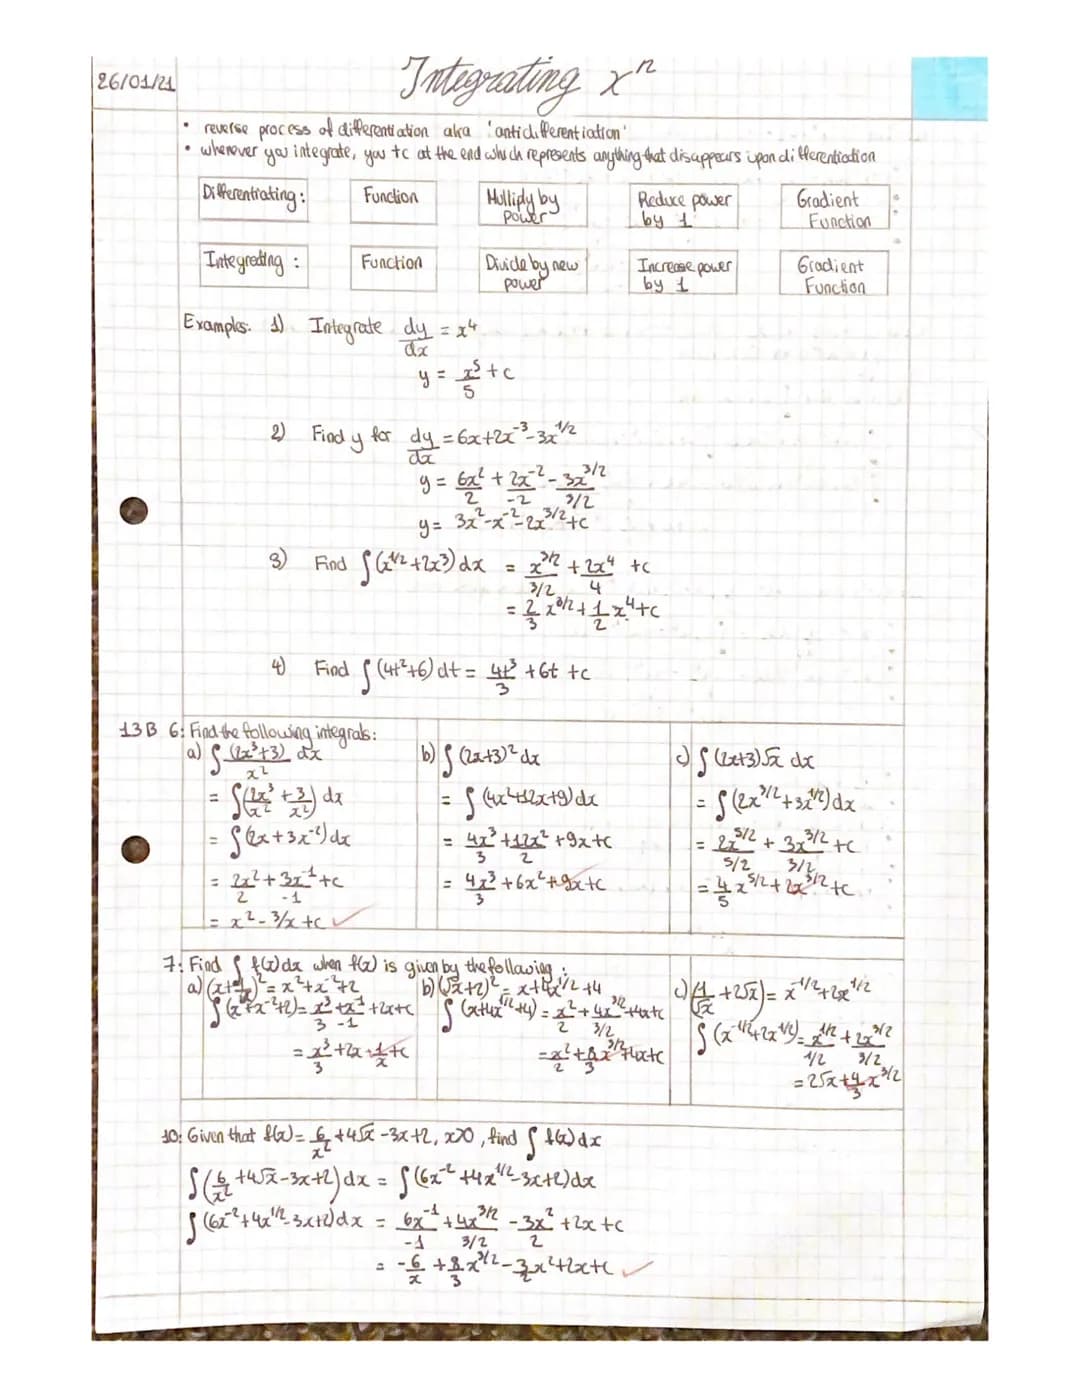 26/01/21
Integrating xⁿ
• reverse process of differentiation aka 'antidifferentiation'
• whenever you integrate, you +c at the end which represents anything that disappears upon differentiation
Differentiating: Function Multiply by power Reduce power by 1 Gradient Function
Integrating: Function Divide by new power Increase power by 1 Gradient Function
Examples: 1) Integrate dy/dx = x⁴
y = x⁵/5 + c
2) Find y for dy/dx = 6x+2x⁻³-3x^1/2
y = 6x²/2 + 2x⁻²/-2 - 3x^3/2/3/2
y = 3x²-x⁻²-2x^3/2+c
3) Find ∫(x^1/2+2x³)dx = x^3/2/3/2 + 2x⁴/4 +c
= 2/3 x^3/2 + 1/2 x⁴+c
4) Find ∫(4t²+6)dt = 4t³/3 +6t +c
13B 6: Find the following integrals:
a) ∫(2x³+3)/x² dx
= ∫(2x³/x² + 3/x²) dx
= ∫(2x+3x⁻²)dx
= 2x²/2 + 3x⁻¹/-1 +c
= x² - 3/x +c ✓
b) ∫(2x+3)² dx
= ∫(4x²+12x+9)dx
= 4x³/3 + 12x²/2 +9x+c
= 4x³/3 +6x²+9x+c
c) ∫(2x+3)√x dx
= ∫(2x^3/2+3x^1/2)dx
= 2x^5/2/5/2 + 3x^3/2/3/2 +c
= 4/5 x^5/2+2x^3/2+c
7: Find ∫f(x)dx when f(x) is given by the following:
a) (x+1/x)² = x²+x⁻²+2
∫(x²+x⁻²+2) = x³/3 + x⁻¹/-1 +2x+c
= x³/3 +2x - 1/x +c
b) (√x+2)² = x+4x^1/2+4
∫(x+4x^1/2+4) = x²/2 + 4x^3/2/3/2 +4x+c
= x²/2 + 8/3 x^3/2+4x+c
c) (1/√x +2√x) = x^-1/2+2x^1/2
∫(x^-1/2+2x^1/2) = x^1/2/1/2 + 2x^3/2/3/2
= 2√x + 4/3 x^3/2
10: Given that f(x) = 6/x² +4√x -3x+2, x>0, find ∫f(x)dx
∫(6/x² +4√x-3x+2)dx = ∫(6x⁻²+4x^1/2-3x+2)dx
∫(6x⁻²+4x^1/2-3x+2)dx = 6x⁻¹/-1 + 4x^3/2/3/2 - 3x²/2 +2x +c
= -6/x + 8/3 x^3/2 - 3/2 x²+2x+c ✓